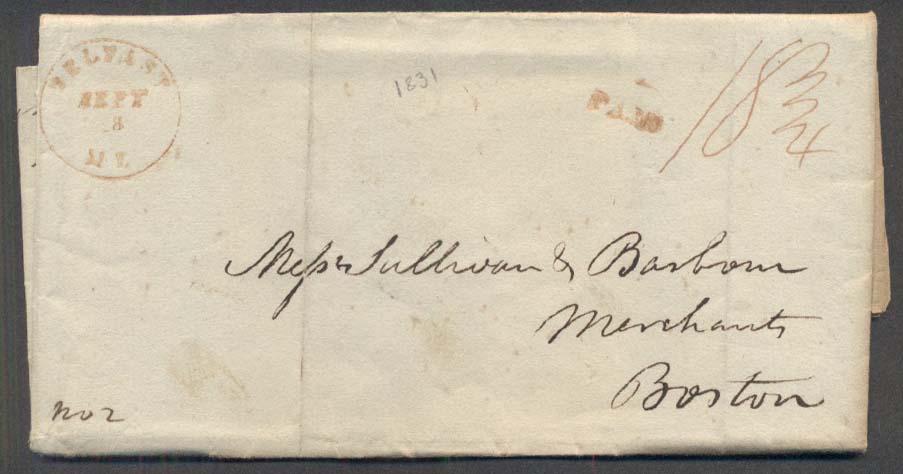 BELFAST
SEPT
8
ME.
1831
PAID
18 3/4
Messrs Sullivan & Barbour
Merchants
Boston
No 2